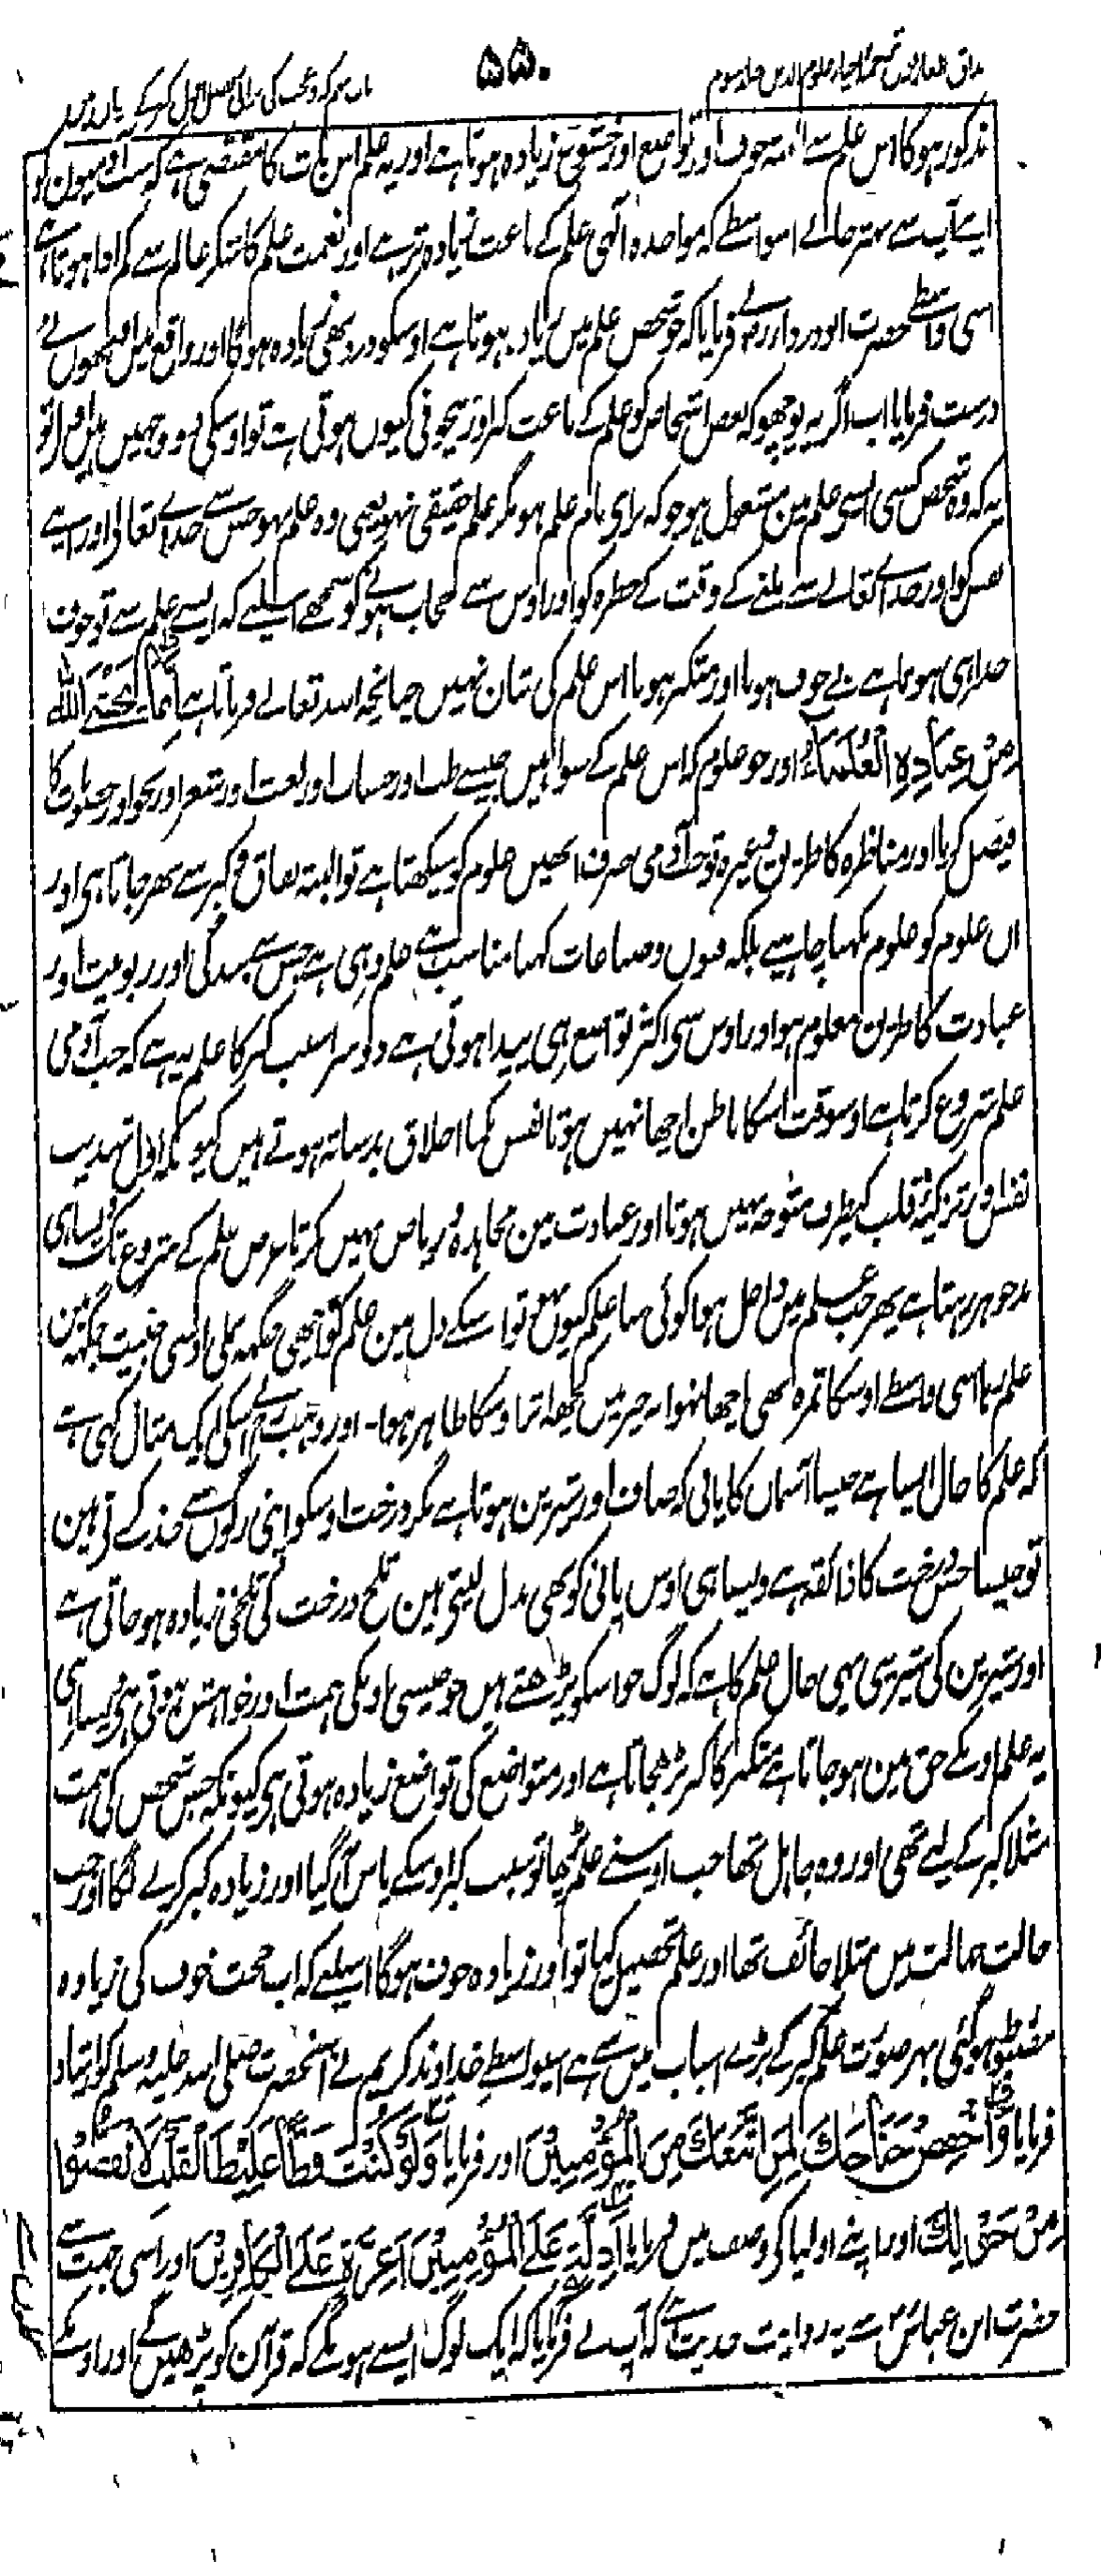 مذاق العارفین ترجمہ احیاء علوم الدین جلد سوم
۵۵۰
مذکور ہوگا اس علم سے البتہ خوف اور تواضع اور خشوع زیادہ ہوتا ہے اور یہ علم اس بات کا مقتضی ہے کہ سب آدمیون کو
اپنے آپ سے بہتر جانے اسواسطے کہ مواخدہ الٓہی علم کے باعث زیادہ تر ہے اور نعمت علم کا شکر عالم سے کم ادا ہوتا ہے
اسی واسطے حضرت ابودرداء نے فرمایا کہ جو شخص علم میں زیادہ ہوتا ہے اوسکو درد بھی زیادہ ہوگا اور واقع میں انھوں نے
درست فرمایا اب اگر یہ پوچھو کہ بعض اشخاص کو علم کے باعث کبر اور بیخوفی کیوں ہوتی ہے تو اوسکی دو وجہیں ہیں اول تو
یہ کہ وہ شخص کسی ایسے علم مین مشغول ہو جو کہ برای نام علم ہو مگر علم حقیقی نہو یعنی وہ علم نہو جس سے خداے تعالی اور اپنے
نفس کو اور خداے تعالے سے ملنے کے وقت کے خطرہ کو اور اوس سے محجاب ہونے کو سمجھے اسلیے کہ ایسے علم سے تو خوف
خدا ہی ہوتا ہے بے خوف ہونا اور متکبر ہونا اس علم کی شان نہیں چنانچہ اللہ تعالے فرماتا ہے اِنَّمَا یَخْشَی اللّٰہَ
مِنْ عِبَادِہِ الْعُلَمَاءُ اور جو علوم کہ اس علم کے سوا ہیں جیسے طب اور حساب اور لغت اور شعر اور نحو اور خصومات کا
فیصل کرنا اور مناظرہ کا طریق وغیرہ تو جب آدمی صرف انھیں علوم کو سیکھتا ہے تو البتہ نفاق و کبر سے بھر جاتا ہی اور
ان علوم کو علوم نکہنا چاہیے بلکہ فنون و صناعات کہنا مناسب ہے علم وہی ہے جس سے بندگی اور ربوبیت اور
عبادت کا طریق معلوم ہو اور اوس سی اکثر تواضع ہی پیدا ہوتی ہے دوسرا سبب کبر کا علم یہ ہے کہ جب آدمی
علم شروع کرتا ہے اوسوقت اسکا باطن اچھا نہیں ہوتا نفس نکما اخلاق بد ساتھ ہوتے ہیں کیونکہ اول تہذیب
نفس اور تزکیۂ قلب کیطرف متوجہ نہیں ہوتا اور عبادت مین مجاہدہ و ریاض نہیں کرتا غرض علم کے شروع تک ویسا ہی
بد جوہر رہتا ہے پھر جب علم میں داخل ہوا کوئی سا علم کیوں نہو تو اسکے دل مین علم کو اچھی جگہہ نملی اوسی خبیث جگہہ مین
علم رہا اسی واسطے اوسکا ثمرہ بھی اچھا نہوا نہ خیر میں کچھہ اثر اوسکا ظاہر ہوا۔ اور وہب نے اسکی ایک مثال کہی ہے
کہ علم کا حال ایسا ہے جیسا آسمان کا پانی کہ صاف اور شیرین ہوتا ہے مگر درخت اوسکو اپنی رگوں سے جذب کرتے ہین
تو جیسا جس درخت کا ذائقہ ہے ویسا ہی اوس پانی کو بھی بدل لیتے ہین تلخ درخت کی تلخی زیادہ ہو جاتی ہے
اور شیرین کی شیرینی یہی حال علم کا ہے کہ لوگ جو اسکو پڑھتے ہیں جو جیسی اونکی ہمت اور خواہش ہوتی ہی ویسا ہی
یہ علم اونکے حق مین ہو جاتا ہے متکبر کا کبر بڑھجاتا ہے اور متواضع کی تواضع زیادہ ہوتی ہی کیونکہ جس شخص کی ہمت
مثلا کبر کے لیے تھی اور وہ جاہل تھا جب اوسنے علم پڑھا تو سبب کبر اوسکے پاس آگیا اور زیادہ کبر کرنے لگا اور جب
حالت جہالت میں مثلا خائف تھا اور علم تحصیل کیا تو اور زیادہ خوف ہوگا اسلیے کہ اب حجت خوف کی زیادہ
مضبوط ہوگئی بہر صورت علم کبر کے بڑے اسباب میں سے ہے اسیواسطے خداوند کریم نے آنحضرت صلی اللہ علیہ وسلم کو ارشاد
فرمایا وَاخْفِضْ جَنَاحَكَ لِمَنِ اتَّبَعَكَ مِنَ الْمُؤْمِنِیْنَ اور فرمایا وَلَوْ كُنْتَ فَظًّا غَلِیْظَ الْقَلْبِ لَانْفَضُّوْا
مِنْ حَوْلِكَ اور اپنے اولیا کی وصف میں فرمایا اَذِلَّةٍ عَلَی الْمُؤْمِنِیْنَ اَعِزَّةٍ عَلَی الْكَافِرِیْنَ اور اسی جہت سے
حضرت ابن عباس سے یہ روایت حدیث ہے کہ آپ نے فرمایا کہ ایک لوگ ایسے ہونگے کہ قرآن کو پڑھینگے اور اونکے